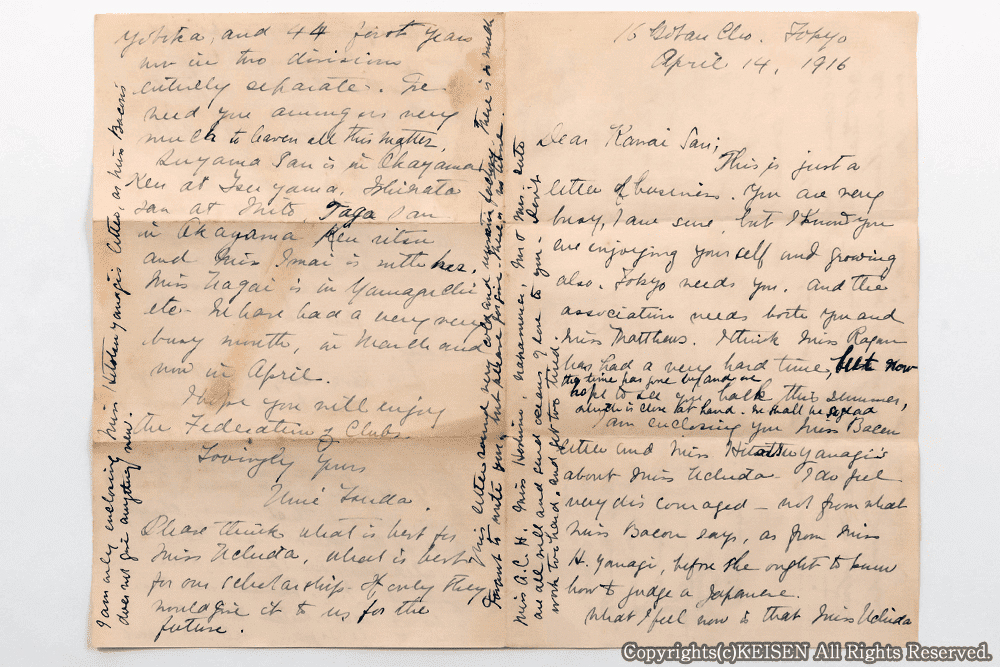 16 Gotan Cho. Tokyo
April 14, 1916
Dear Kawai San;
This is just a
letter of business. You are very
busy, I am sure, but I know you
are enjoying yourself and growing
also. Tokyo needs you. and the
association needs both you and
Miss Matthews. I think Miss Ragan
has had a very hard time, but now
the time has gone by and we
hope to see you back this summer,
which is close at hand. We shall be so glad
I am enclosing you Miss Bacon
letter and Miss Hitotsuyanagi's
about Miss Uchida. I do feel
very discouraged — not from what
Miss Bacon says, as from Miss
H. Yanagi, before she ought to know
how to judge a Japanese.
What I feel now is that Miss Uchida
Miss A.C.H. Miss Hoshino, Mr & Mrs.
are all well and send oceans of love to you - Don't
work too hard, and get too tired.
and 44 first years
now in two divisions
entirely separate. We
need you among us very
much to leaven all this matter.
Suyama San is in Okayama
Ken at Tsuyama,
San at Mito, Taga San
in Okayama Ken ritsu
and Miss Imai is with her.
Miss Nagai is in Yamaguchi
etc. We have had a very very
busy month, in March and
now in April.
I hope you will enjoy
the Federation of Clubs.
Lovingly Yours
Umé Tsuda.
Please think what is best for
Miss Uchida, what is best
for our scholarship. If only they
would give it to us for the
future.
This letter sounds very cold and There is so much
I want to write you, but please forgive. There is no time.
I am only enclosing Miss Hitotsuyanagi's letter, as Miss Bacon's
does not give anything new.
Copyrights(c)KEISEN All Rights Reserved.